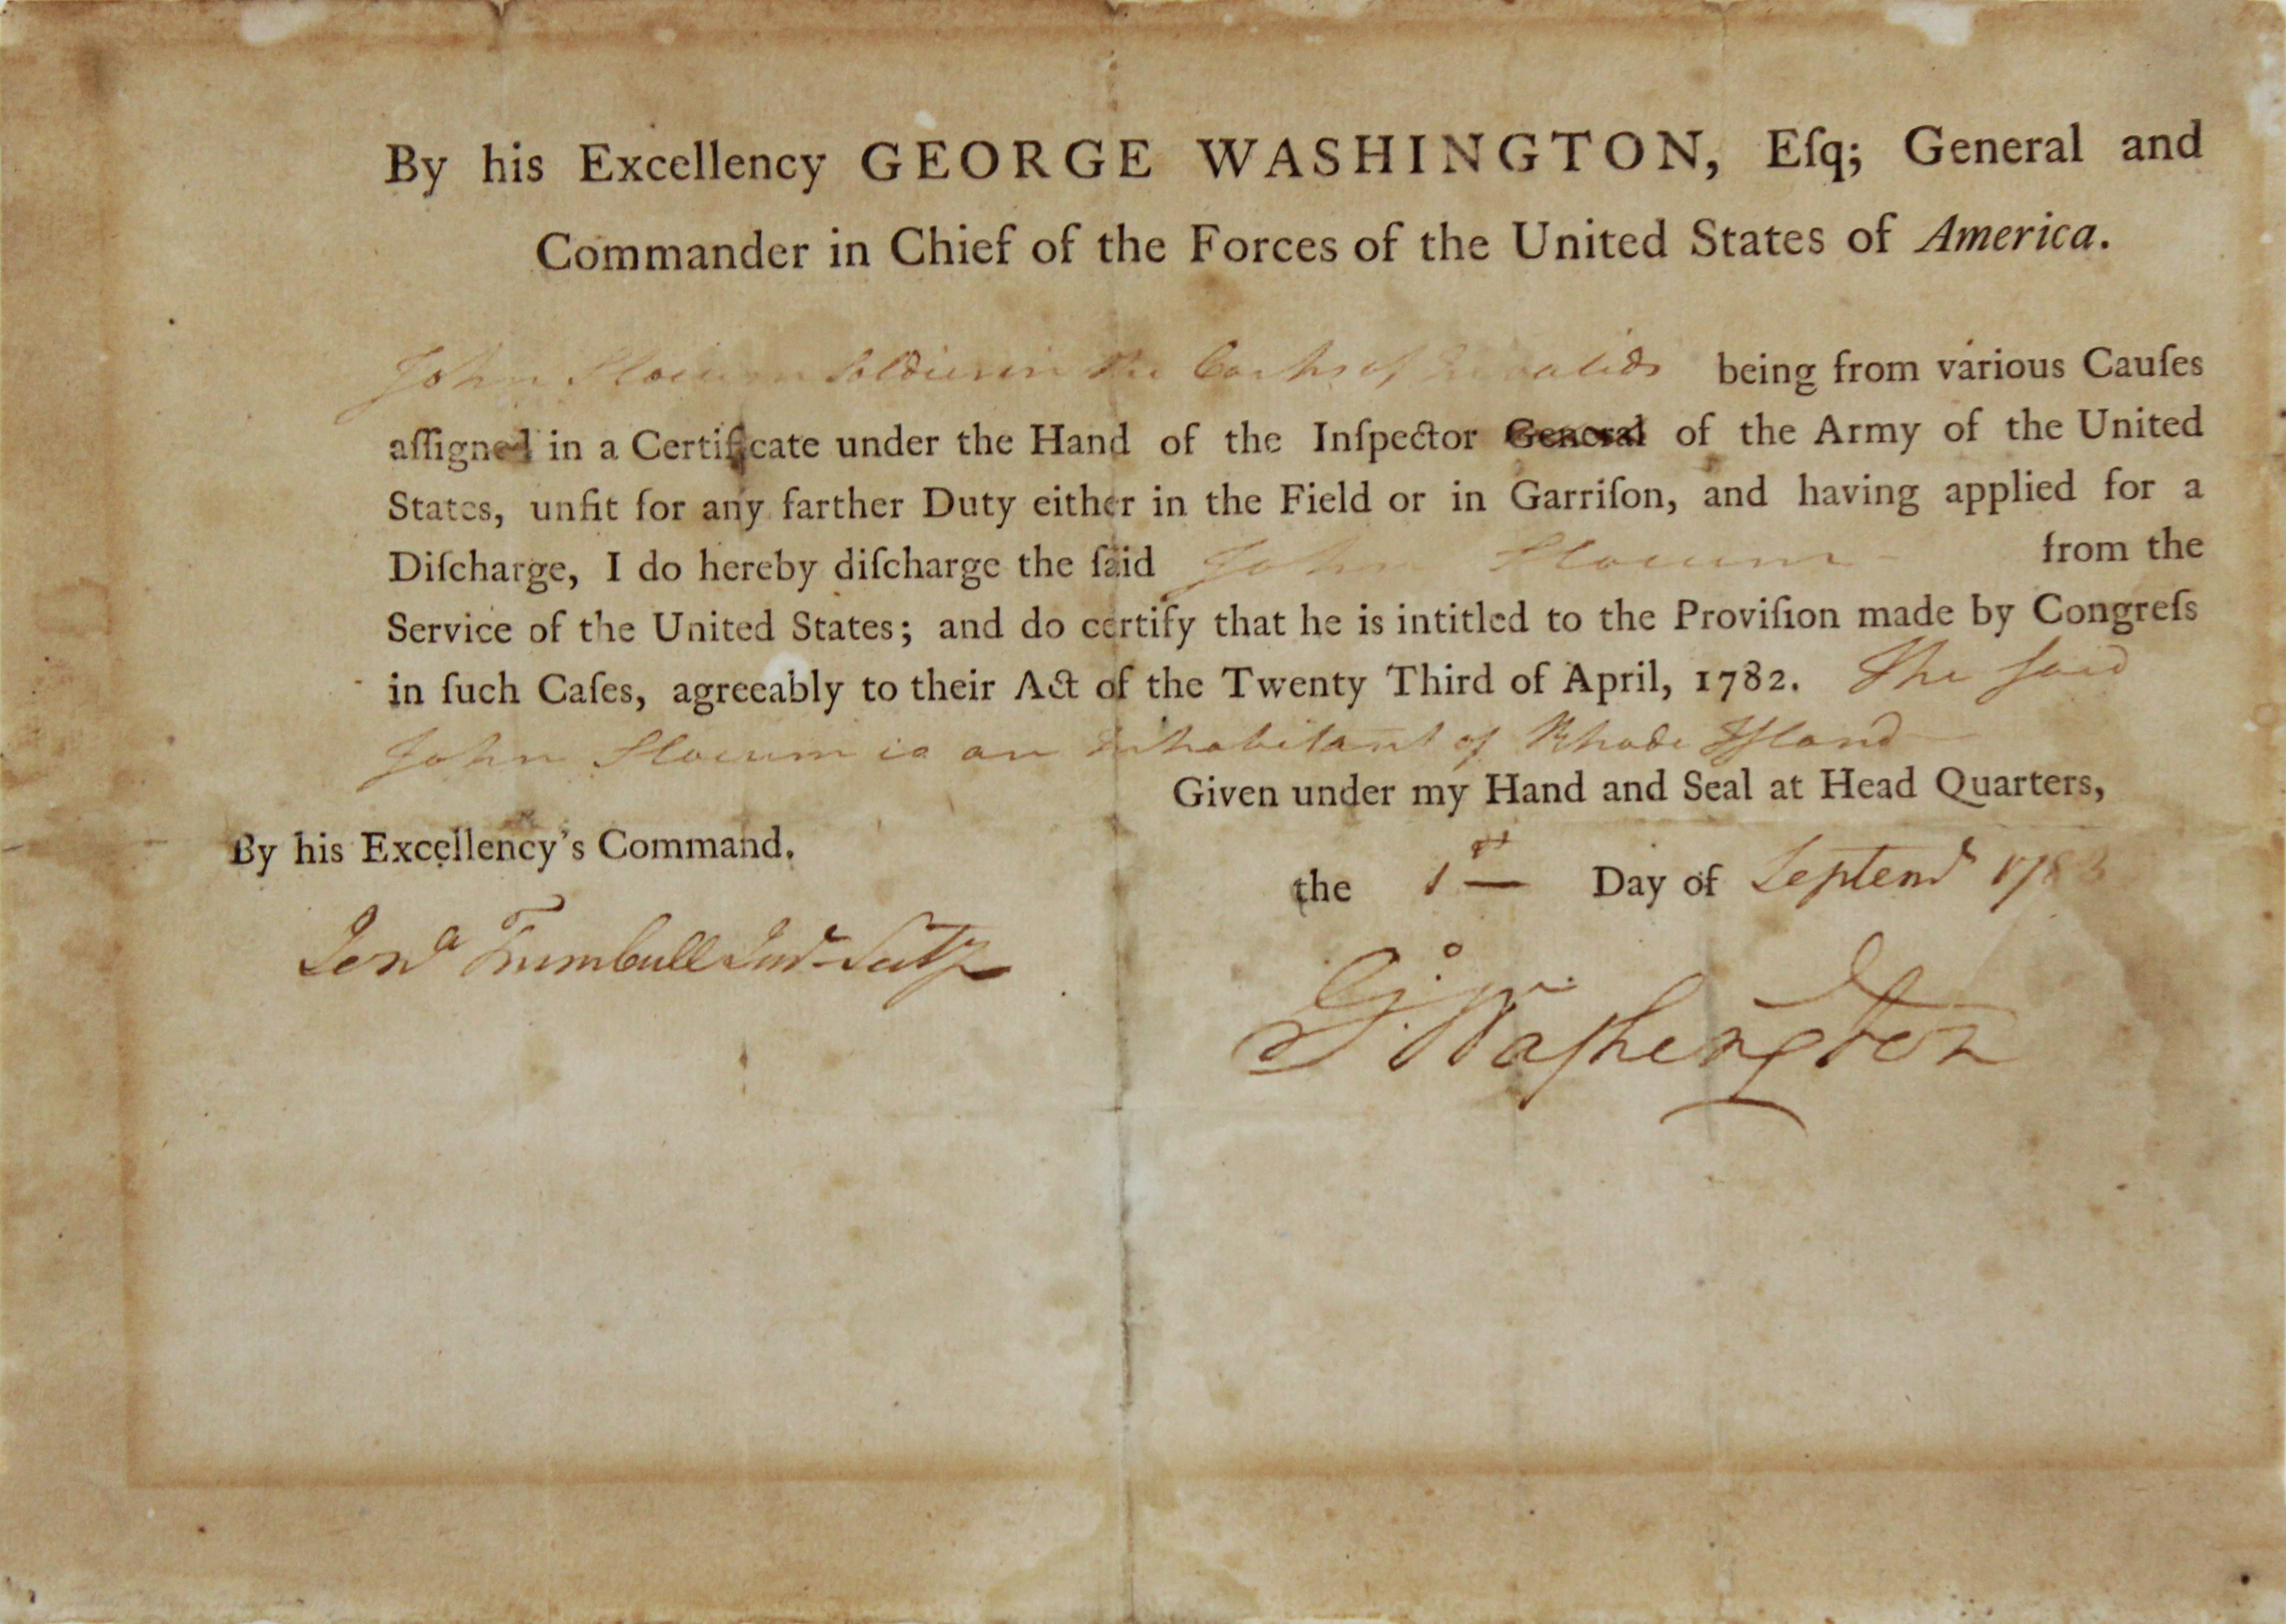 By his Excellency GEORGE WASHINGTON, Eſq; General and
Commander in Chief of the Forces of the United States of America.
John Slocum Soldier in the Corps of Invalids being from various Cauſes
aſſigned in a Certificate under the Hand of the Inſpector General of the Army of the United
States, unfit for any farther Duty either in the Field or in Garriſon, and having applied for a
Diſcharge, I do hereby diſcharge the ſaid John Slocum from the
Service of the United States; and do certify that he is intitled to the Proviſion made by Congreſs
in ſuch Caſes, agreeably to their Act of the Twenty Third of April, 1782. The ſaid
John Slocum is an inhabitant of Rhode Iſland
Given under my Hand and Seal at Head Quarters,
By his Excellency's Command.
the 1st Day of Septemr
Jona Trumbull Junr Secty
Go Washington